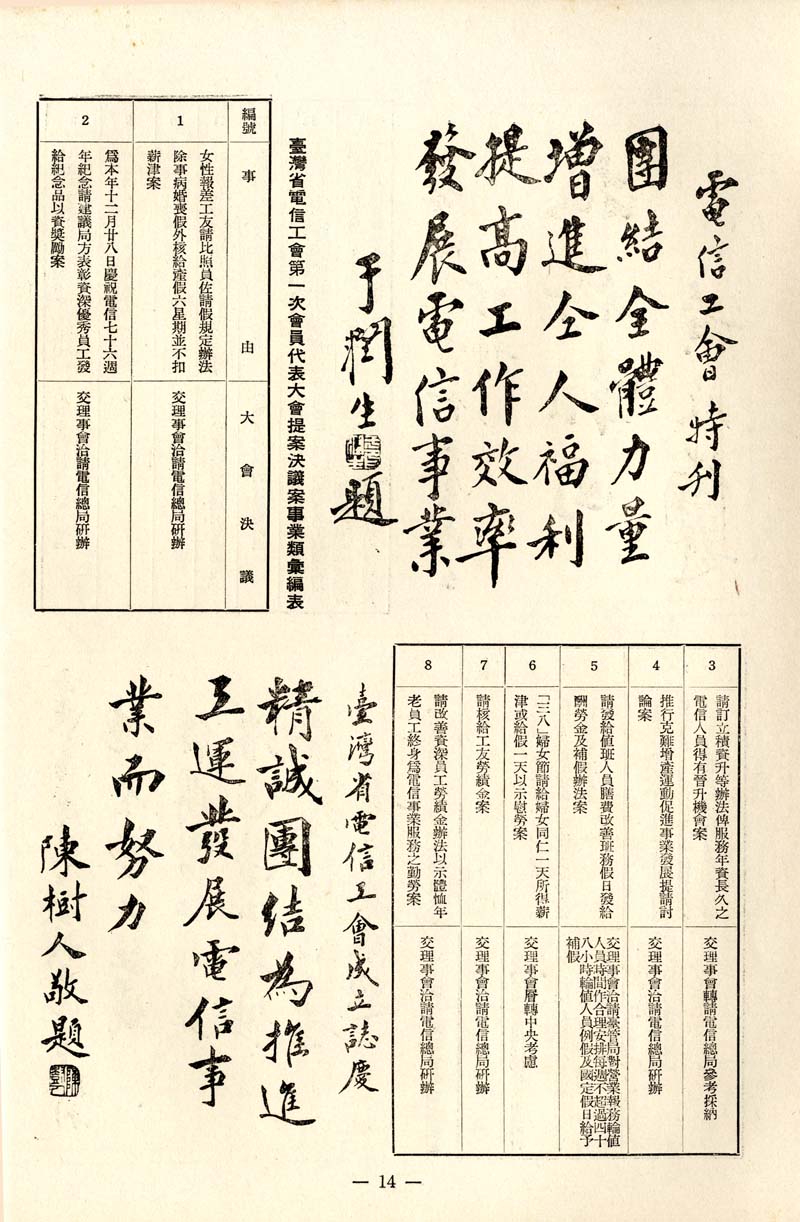 電信工會特刊
團結全體力量
增進仝人福利
提高工作效率
發展電信事業
于潤生題
臺灣省電信工會第一次會員代表大會提案決議案事業類彙編表
編號
事由
大會決議
1
女性報差工友請比照員佐請假規定辦法
除事病婚喪假外核給產假六星期並不扣
薪津案
交理事會洽請電信總局研辦
2
爲本年十二月廿八日慶祝電信七十六週
年紀念請建議局方表彰資深優秀員工發
給紀念品以資獎勵案
交理事會洽請電信總局研辦
3
請訂立積資升等辦法俾服務年資長久之
電信人員得有晉升機會案
交理事會轉請電信總局參考採納
4
推行克難增產運動促進事業發展提請討
論案
交理事會洽請電信總局研辦
5
請發給值班人員膳費改善班務假日發給
酬勞金及補假辦法案
交理事會洽請臺管局對營業報務輪值
人員時間作合理安排每週不超過四十
八小時輪值人員例假及國定假日給予
補假
6
「三八」婦女節請給婦女同仁一天所得薪
津或給假一天以示慰勞案
交理事會層轉中央考慮
7
請核給工友勞績金案
交理事會洽請電信總局研辦
8
請改善資深員工勞績金辦法以示體恤年
老員工終身爲電信事業服務之勤勞案
交理事會洽請電信總局研辦
臺灣省電信工會成立誌慶
精誠團結為推進
工運發展電信事
業而努力
陳樹人敬題
— 14 —